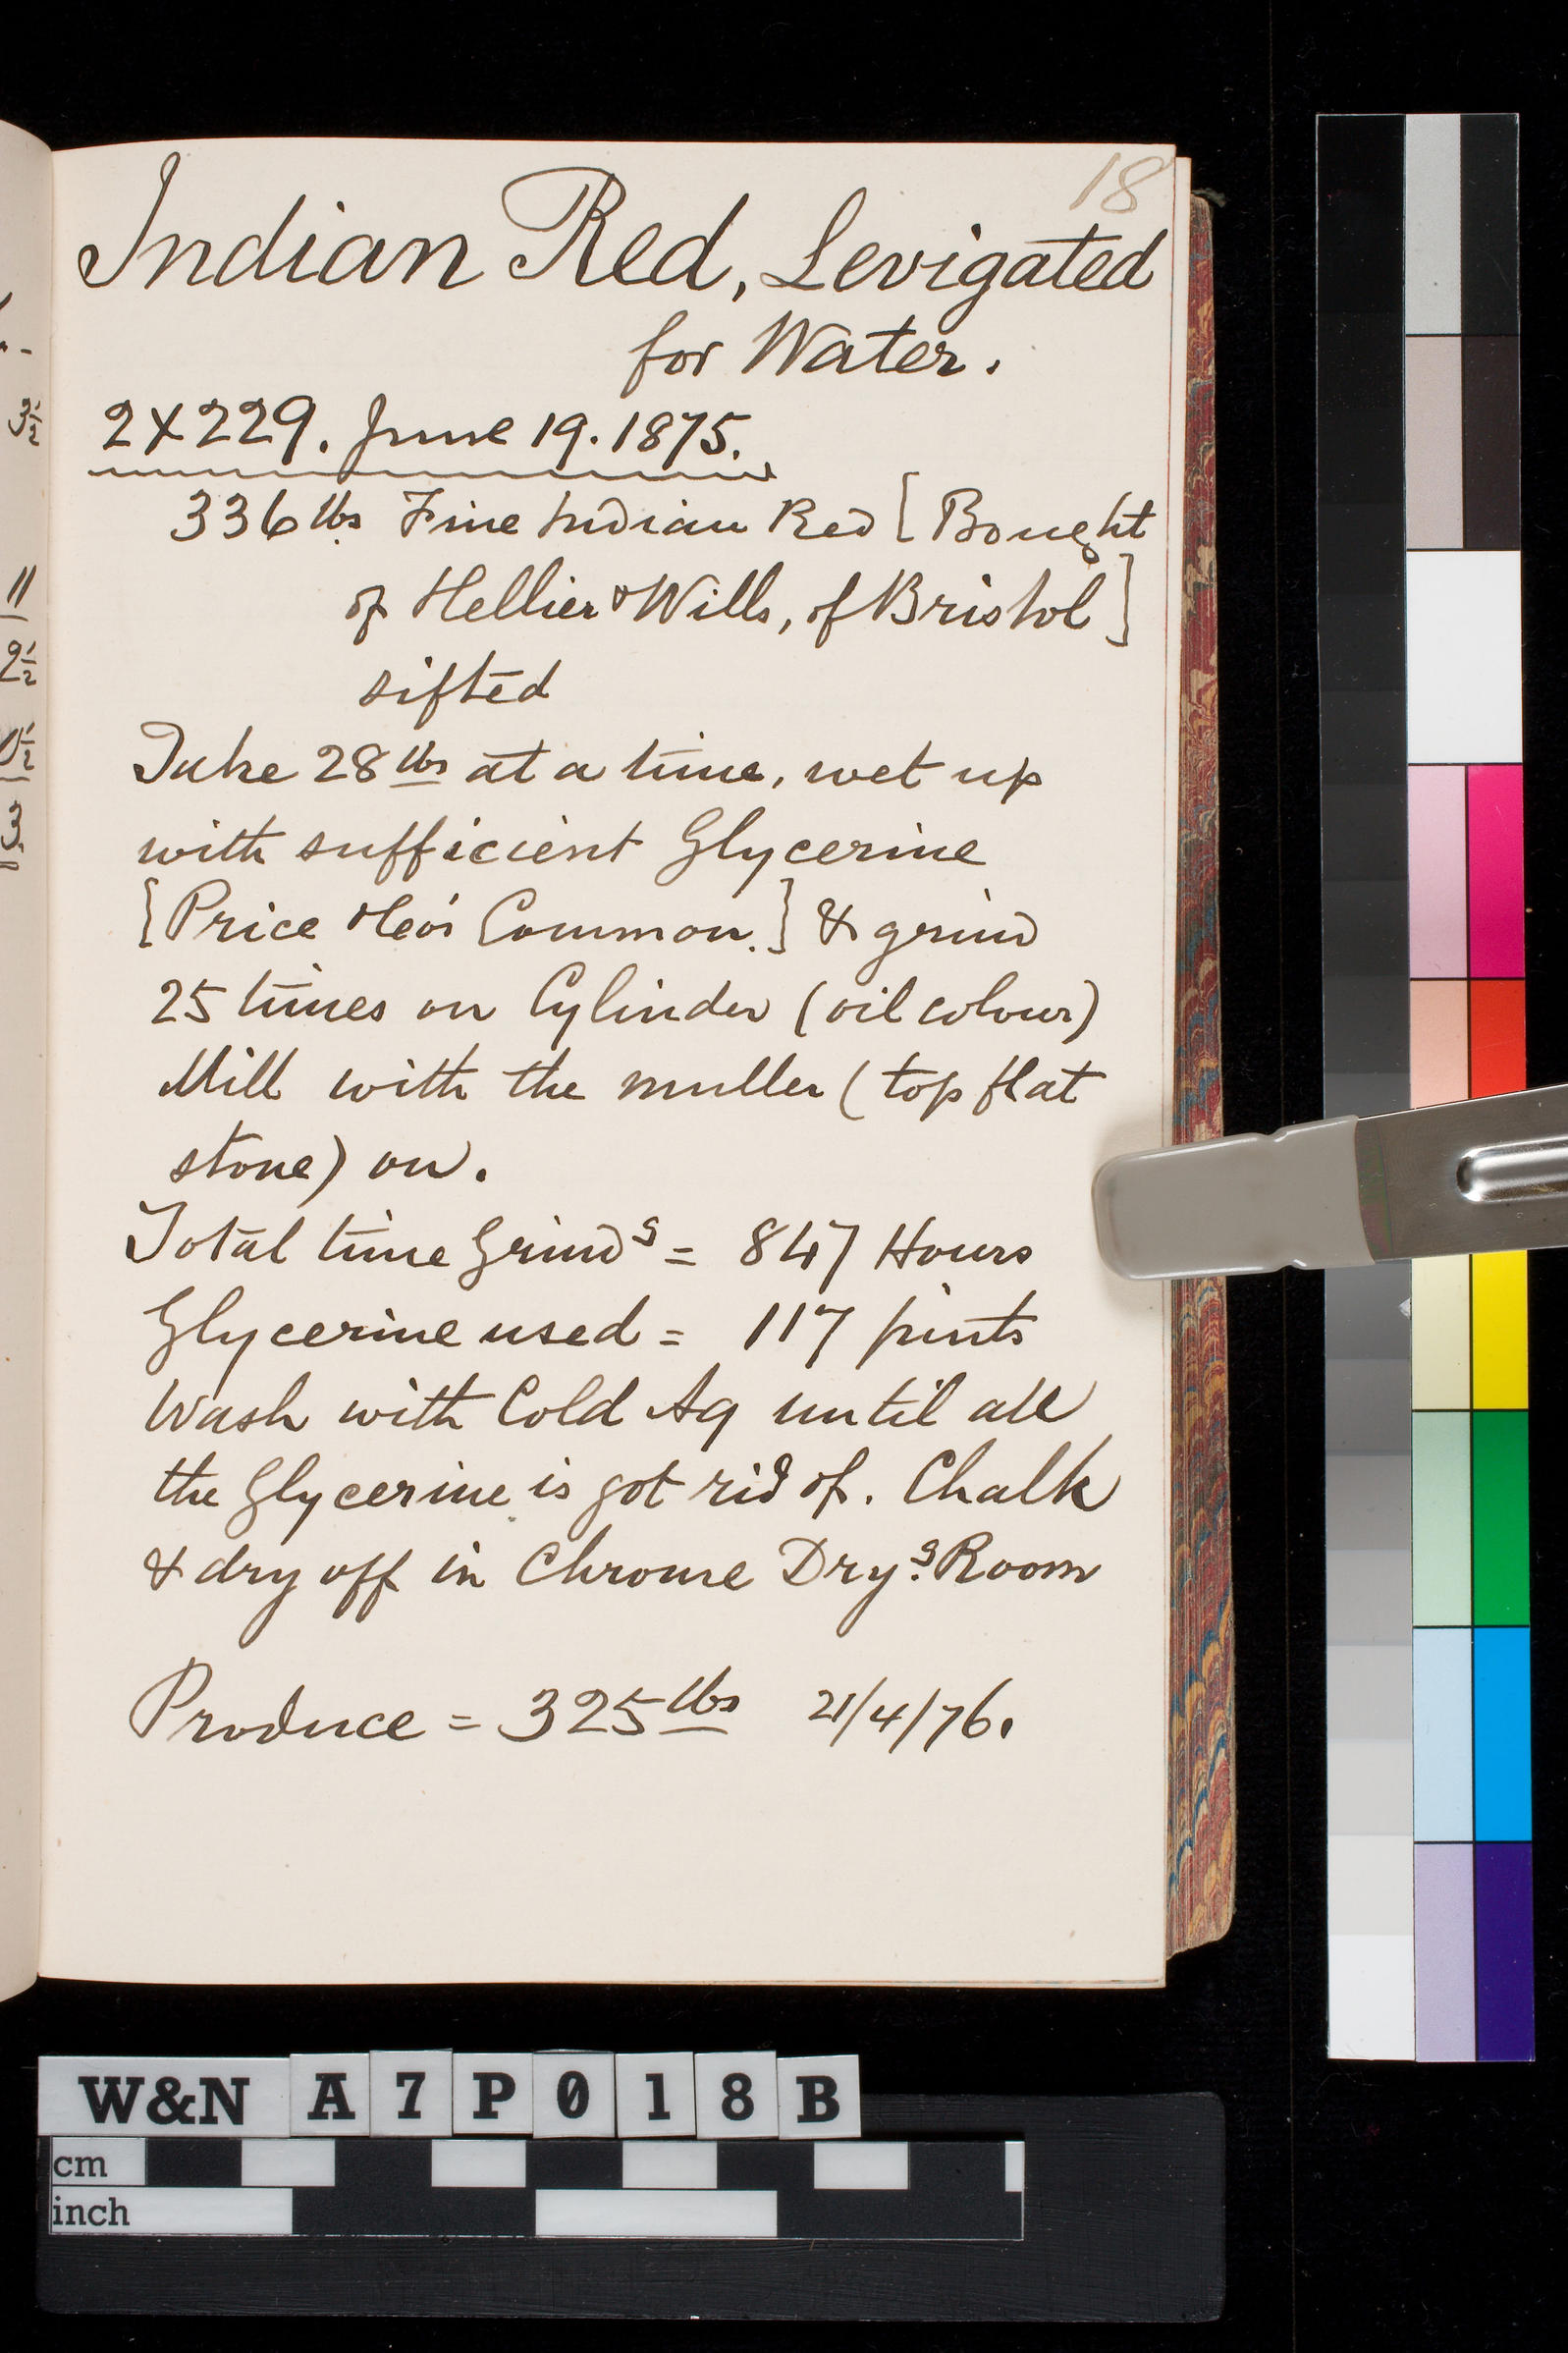 18
Indian Red, Levigated
for Water.
2X229. June 19. 1875.
336 lbs Fine Indian Red [Bought
of Hellier & Wills, of Bristol]
sifted
Take 28 lbs at a time, wet up
with sufficient Glycerine
[Price &Co's Common.] & grind
25 times on Cylinder (oil colour)
Mill with the muller (top flat
stone) on.
Total time Grindg = 847 Hours
Glycerine used = 117 pints
Wash with Cold Aq until all
the Glycerine is got rid of. Chalk
& dry off in Chrome Dryg. Room
Produce = 325 lbs 21/4/76.
3½
11
2½
3
W&N A7P018B
cm
inch